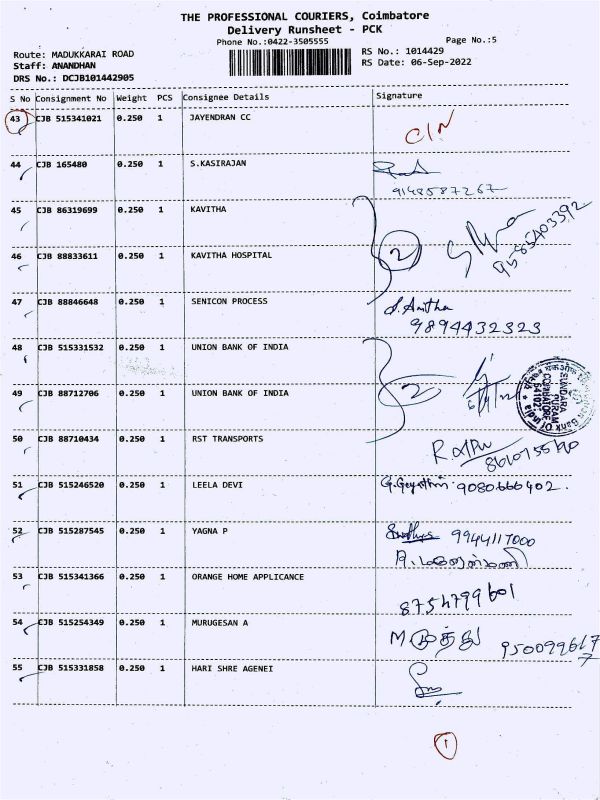 THE PROFESSIONAL COURIERS, Coimbatore
Delivery Runsheet - PCK
Phone No.:0422-3505555
Page No.:5
Route: MADUKKARAI ROAD
RS No.: 1014429
Staff: ANANDHAN
RS Date: 06-Sep-2022
DRS No.: DCJB101442905
S No Consignment No Weight PCS Consignee Details Signature
43 CJB 515341021 0.250 1 JAYENDRAN CC
44 CJB 165480 0.250 1 S.KASIRAJAN
9148587267
45 CJB 86319699 0.250 1 KAVITHA
9585403392
46 CJB 88833611 0.250 1 KAVITHA HOSPITAL 2
47 CJB 88846648 0.250 1 SENICON PROCESS S.Anitha
9894432323
48 CJB 515331532 0.250 1 UNION BANK OF INDIA
49 CJB 88712706 0.250 1 UNION BANK OF INDIA 2
50 CJB 88710434 0.250 1 RST TRANSPORTS
51 CJB 515246520 0.250 1 LEELA DEVI G.Gayathri 9080666402.
52 CJB 515287545 0.250 1 YAGNA P 9944117000
53 CJB 515341366 0.250 1 ORANGE HOME APPLICANCE
8754799601
54 CJB 515254349 0.250 1 MURUGESAN A M முத்து 9500996177
55 CJB 515331858 0.250 1 HARI SHRE AGENEI
1